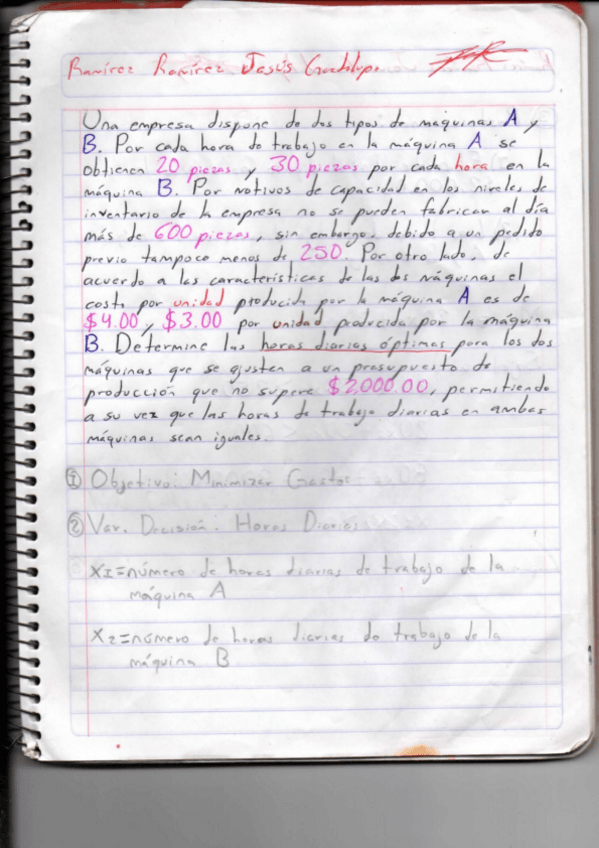 Ramírez Ramírez Jesús Guadalupe
Una empresa dispone de dos tipos de maquinas A y
B. Por cada hora de trabajo en la máquina A se
obtienen 20 piezas y 30 piezas por cada hora en la
máquina B. Por motivos de capacidad en los niveles de
inventario de la empresa no se pueden fabricar al día
más de 600 piezas, sin embargo, debido a un pedido
previo tampoco menos de 250. Por otro lado, de
acuerdo a las características de las dos máquinas el
costo por unidad producida por la máquina A es de
$4.00 y $3.00 por unidad producida por la máquina
B. Determine las horas diarias óptimas para los dos
máquinas que se ajusten a un presupuesto de
producción que no supere $2,000.00, permitiendo
a su vez que las horas de trabajo diarias en ambas
máquinas sean iguales.
① Objetivo: Minimizar Gastos
② Var. Decisión: Horas Diarias
x1=número de horas diarias de trabajo de la
máquina A
x2=número de horas diarias de trabajo de la
máquina B